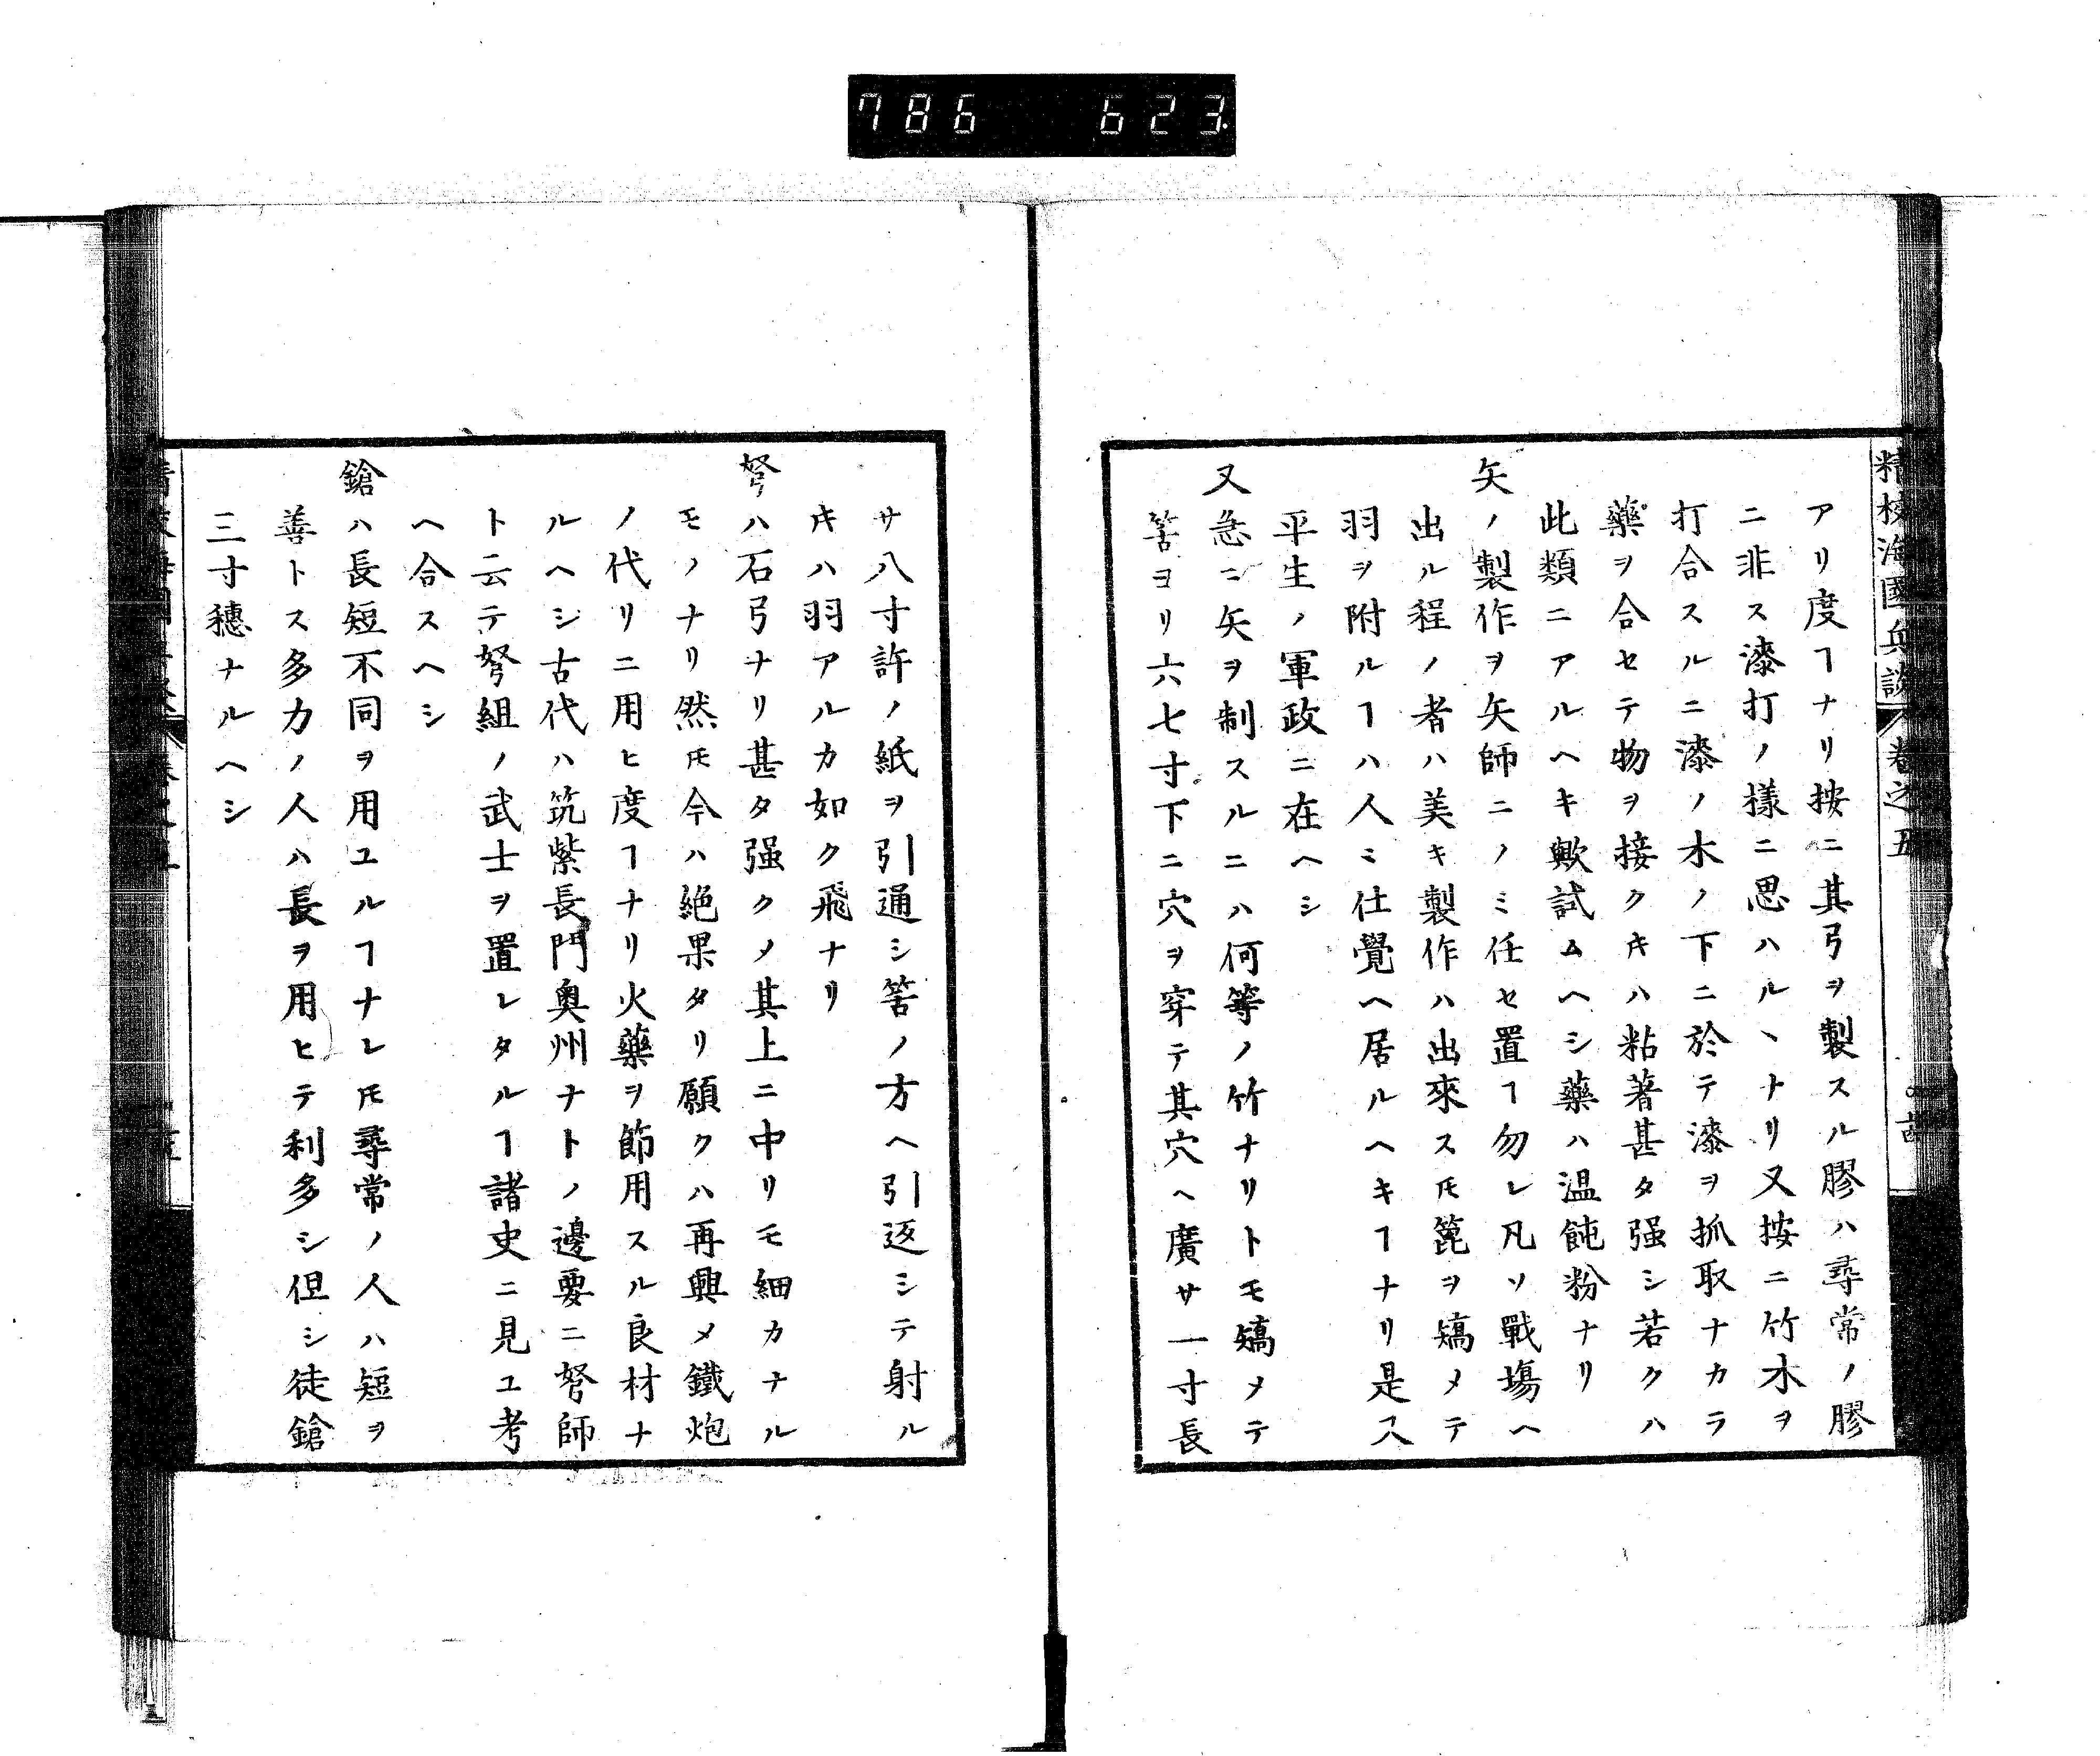 786 623
精校海國兵談 卷之五
アリ度ヿナリ按ニ其弓ヲ製スル膠ハ尋常ノ膠
ニ非ス漆打ノ樣ニ思ハルヽナリ又按ニ竹木ヲ
打合スルニ漆ノ木ノ下ニ於テ漆ヲ抓取ナカラ
藥ヲ合セテ物ヲ接クキハ粘著甚タ强シ若クハ
此類ニアルヘキ歟試ムヘシ藥ハ温飩粉ナリ
矢ノ製作ヲ矢師ニノミ任セ置ヿ勿レ凡ソ戰場ヘ
出ル程ノ者ハ美キ製作ハ出來スㇳモ箆ヲ矯メテ
羽ヲ附ルヿハ人ミ仕覺ヘ居ルヘキヿナリ是又
平生ノ軍政ニ在ヘシ
又急ニ矢ヲ制スルニハ何等ノ竹ナリトモ矯メテ
筈ヨリ六七寸下ニ穴ヲ穿テ其穴ヘ廣サ一寸長
サ八寸許ノ紙ヲ引通シ筈ノ方ヘ引返シテ射ル
キハ羽アルカ如ク飛ナリ
弩ハ石弓ナリ甚タ强クメ其上ニ中リモ細カナル
モノナリ然ㇳモ今ハ絶果タリ願クハ再興メ鐵炮
ノ代リニ用ヒ度ヿナリ火藥ヲ節用スル良材ナ
ルヘシ古代ハ筑紫長門奧州ナトノ邊要ニ弩師
ト云テ弩組ノ武士ヲ置レタルヿ諸史ニ見ユ考
ヘ合スヘシ
鎗ハ長短不同ヲ用ユルヿナレㇳモ尋常ノ人ハ短ヲ
善トス多力ノ人ハ長ヲ用ヒテ利多シ但シ徒鎗
三寸穗ナルヘシ